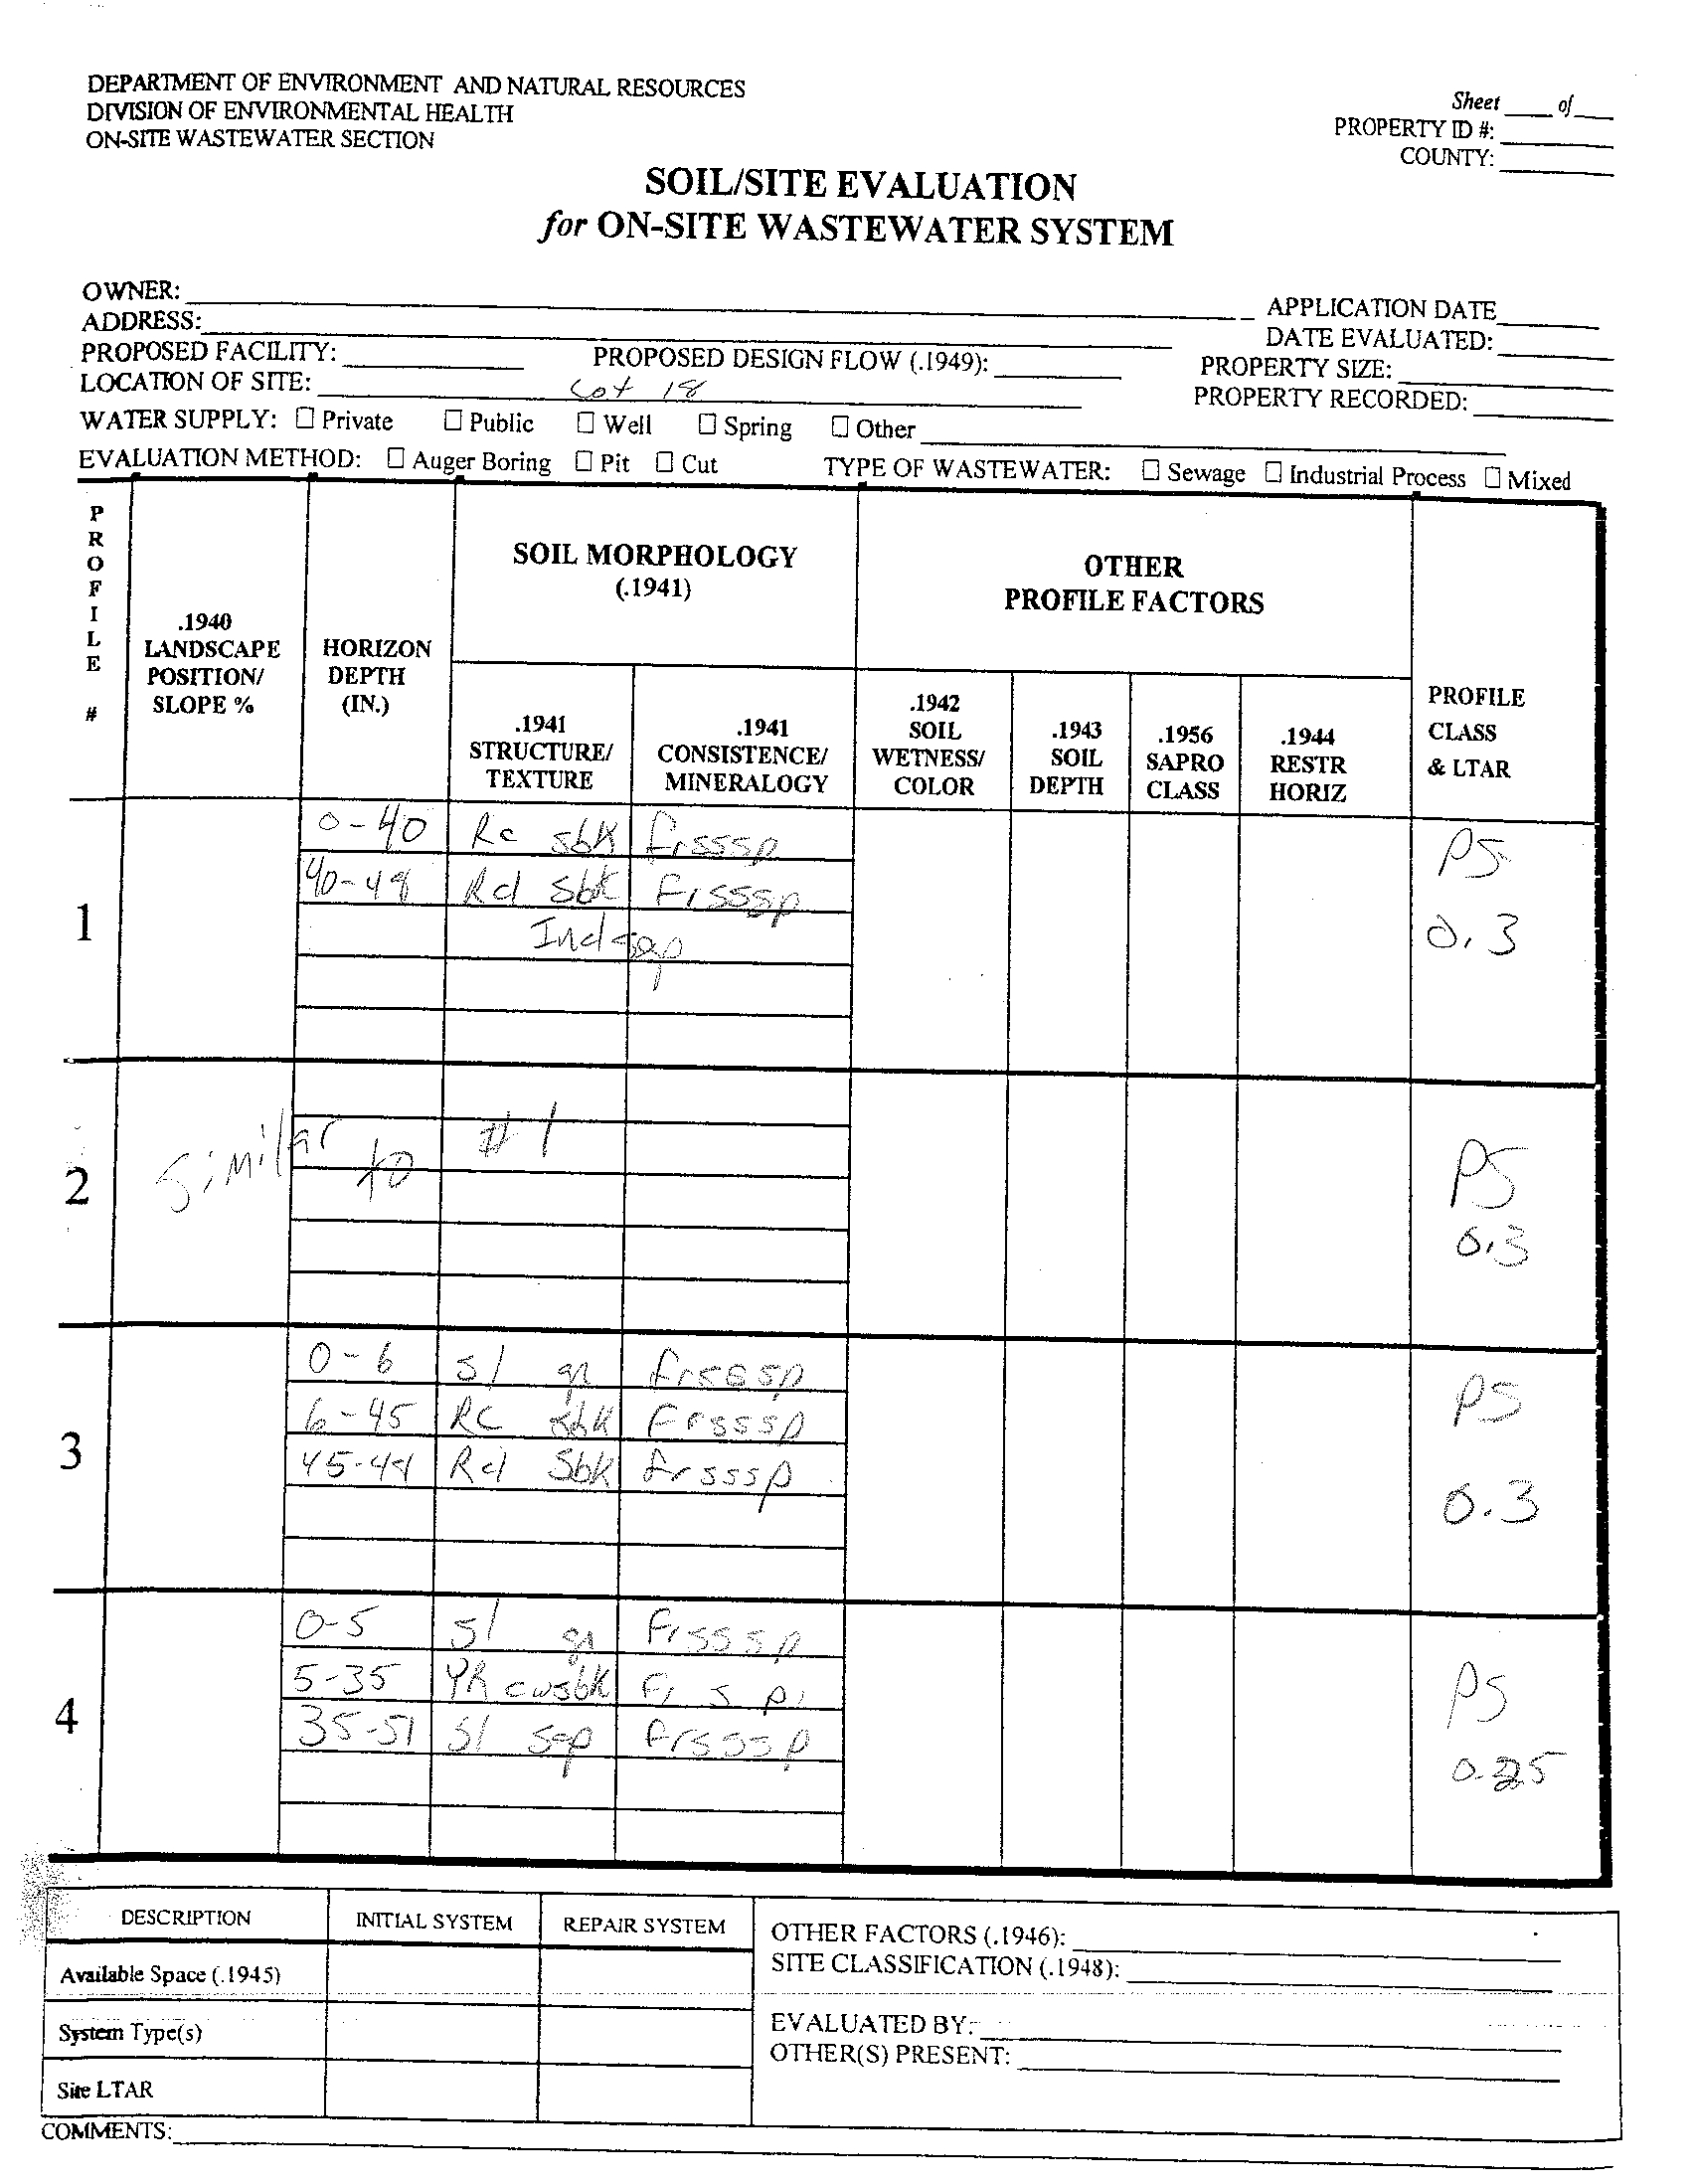 DEPARTMENT OF ENVIRONMENT AND NATURAL RESOURCES
DIVISION OF ENVIRONMENTAL HEALTH
ON-SITE WASTEWATER SECTION
Sheet ____ of ____
PROPERTY ID #:
COUNTY:
SOIL/SITE EVALUATION
for ON-SITE WASTEWATER SYSTEM
OWNER:
ADDRESS:
PROPOSED FACILITY: PROPOSED DESIGN FLOW (.1949):
LOCATION OF SITE: Lot 18
APPLICATION DATE
DATE EVALUATED:
PROPERTY SIZE:
PROPERTY RECORDED:
WATER SUPPLY: ☐ Private ☐ Public ☐ Well ☐ Spring ☐ Other
EVALUATION METHOD: ☐ Auger Boring ☐ Pit ☐ Cut TYPE OF WASTEWATER: ☐ Sewage ☐ Industrial Process ☐ Mixed
PROFILE #
.1940 LANDSCAPE POSITION/ SLOPE %
HORIZON DEPTH (IN.)
SOIL MORPHOLOGY
(.1941)
.1941 STRUCTURE/ TEXTURE
.1941 CONSISTENCE/ MINERALOGY
OTHER
PROFILE FACTORS
.1942 SOIL WETNESS/ COLOR
.1943 SOIL DEPTH
.1956 SAPRO CLASS
.1944 RESTR HORIZ
PROFILE CLASS & LTAR
1
0-40 Rc sbk frsssp
40-48 Rcl sbk frsssp
Incl sap
PS
0.3
2
Similar to #1
PS
0.3
3
0-6 sl gr frsssp
6-45 RC sbk frsssp
45-48 Rcl Sbk frsssp
PS
0.3
4
0-5 sl gr frsssp
5-35 YR cwsbk fi s p
35-51 sl sap frsssp
PS
0.25
DESCRIPTION INITIAL SYSTEM REPAIR SYSTEM
Available Space (.1945)
System Type(s)
Site LTAR
OTHER FACTORS (.1946):
SITE CLASSIFICATION (.1948):
EVALUATED BY:
OTHER(S) PRESENT:
COMMENTS: